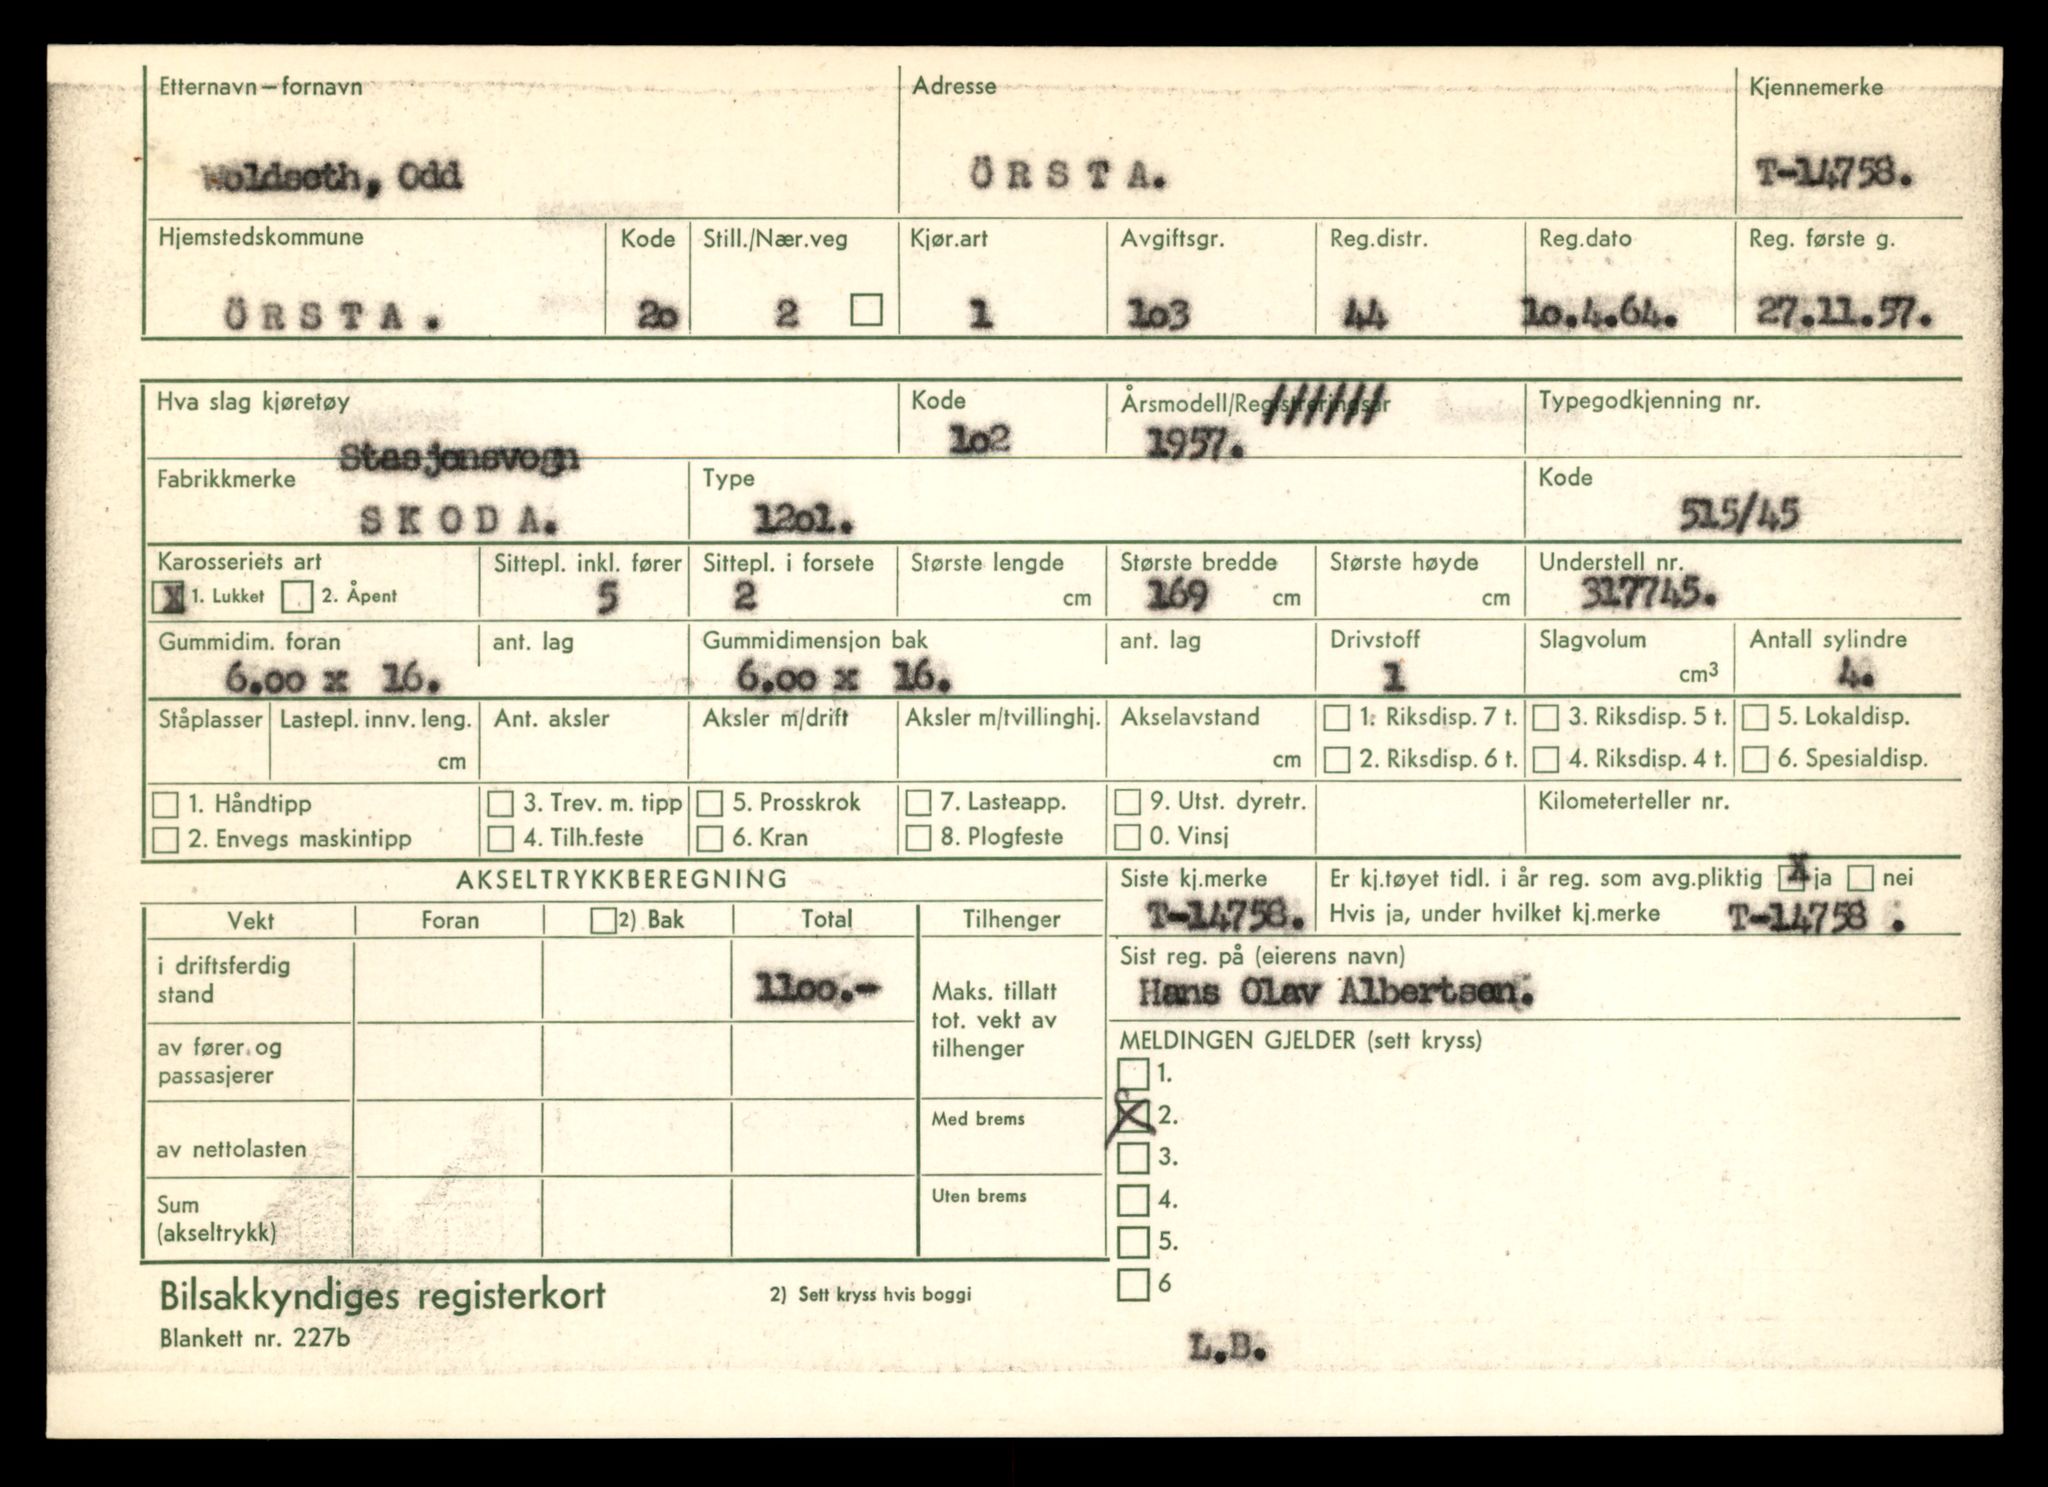 Etternavn—fornavn Adresse Kjennemerke
Woldseth, Odd ÖRSTA. T-14758.
Hjemstedskommune Kode Still./Nær.veg Kjør.art Avgiftsgr. Reg.distr. Reg.dato Reg. første g.
ÖRSTA. 2o 2 1 1o3 44 1o.4.64. 27.11.57.
Hva slag kjøretøy Kode Årsmodell/Registreringsår ////// Typegodkjenning nr.
Stasjonsvogn 1o2 1957.
Fabrikkmerke Type Kode
SKODA. 12o1. 515/45
Karosseriets art Sittepl. inkl. fører Sittepl. i forsete Største lengde Største bredde Største høyde Understell nr.
X 1. Lukket 2. Åpent 5 2 cm 169 cm cm 317745.
Gummidim. foran ant. lag Gummidimensjon bak ant. lag Drivstoff Slagvolum Antall sylindre
6.oo x 16. 6.oo x 16. 1 cm3 4.
Ståplasser Lastepl. innv. leng. Ant. aksler Aksler m/drift Aksler m/tvillinghj. Akselavstand 1. Riksdisp. 7 t. 3. Riksdisp. 5 t. 5. Lokaldisp.
cm cm 2. Riksdisp. 6 t. 4. Riksdisp. 4 t. 6. Spesialdisp.
1. Håndtipp 3. Trev. m. tipp 5. Prosskrok 7. Lasteapp. 9. Utst. dyretr. Kilometerteller nr.
2. Envegs maskintipp 4. Tilh.feste 6. Kran 8. Plogfeste 0. Vinsj
AKSELTRYKKBEREGNING Siste kj.merke Er kj.tøyet tidl. i år reg. som avg.pliktig X ja nei
T-14758. Hvis ja, under hvilket kj.merke T-14758 .
Vekt Foran 2) Bak Total Tilhenger
Sist reg. på (eierens navn)
Hans Olav Albertsen.
i driftsferdig stand 11oo.- Maks. tillatt tot. vekt av tilhenger
MELDINGEN GJELDER (sett kryss)
av fører og passasjerer
1.
X 2.
Med brems
av nettolasten
3.
Uten brems
4.
Sum (akseltrykk)
5.
6
Bilsakkyndiges registerkort 2) Sett kryss hvis boggi
Blankett nr. 227b
L.B.